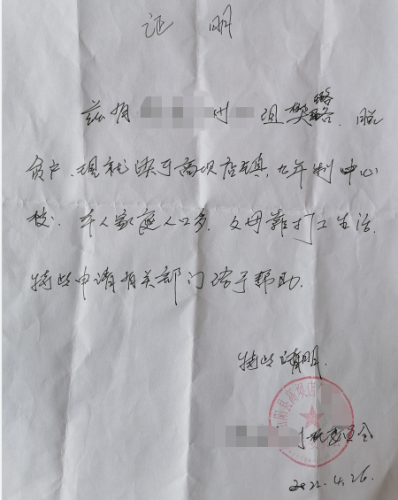 证明
兹有 村 组樊璐 脱
贫户、现就读于高坝店镇九年制中心
校. 本人家庭人口多, 父母靠打工生活,
特此申请有关部门给予帮助.
特此证明
村委员会
2022.4.26.